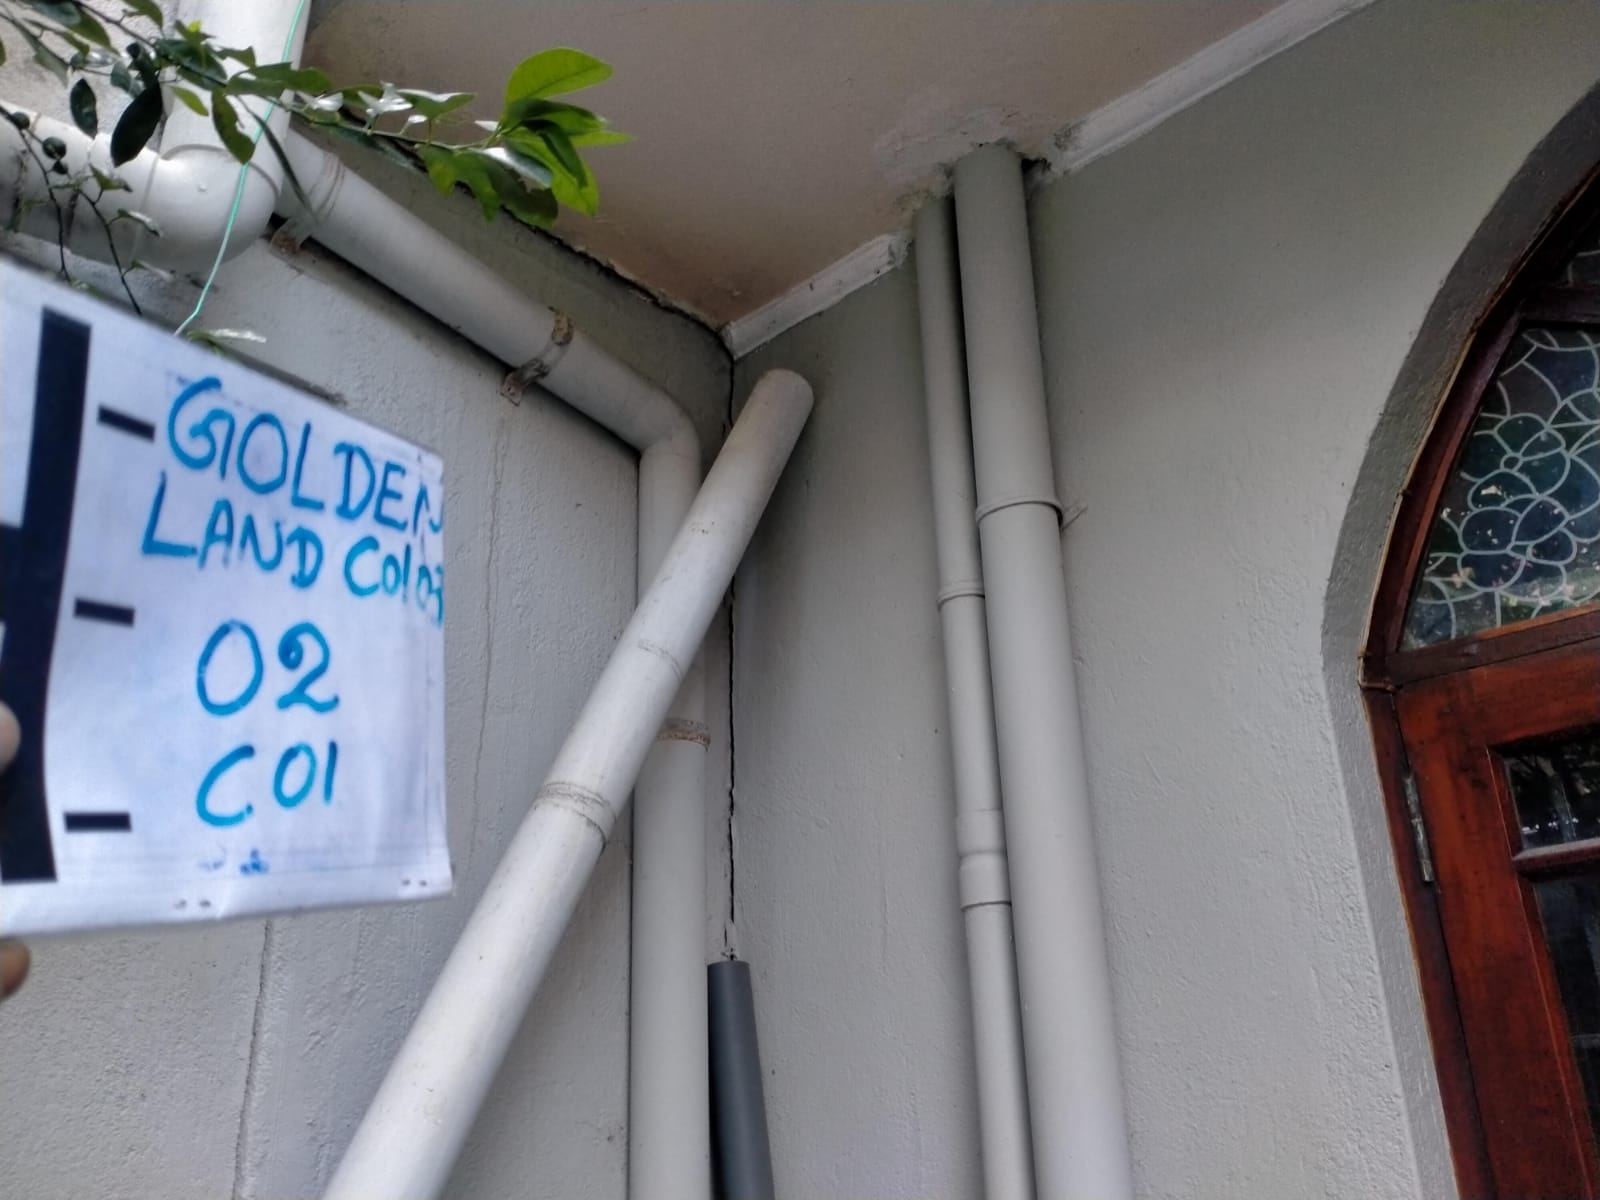 GOLDEN
LAND Col 03
02
C01